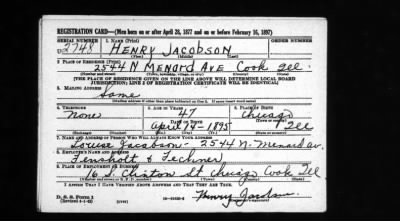 REGISTRATION CARD—(Men born on or after April 28, 1877 and on or before February 16, 1897)
SERIAL NUMBER 1. NAME (Print) ORDER NUMBER
U2748 HENRY JACOBSON
(First) (Middle) (Last)
2. PLACE OF RESIDENCE (Print)
2544 N MENARD AVE COOK Ill
(Number and street) (Town, township, village, or city) (County) (State)
[THE PLACE OF RESIDENCE GIVEN ON THE LINE ABOVE WILL DETERMINE LOCAL BOARD
JURISDICTION; LINE 2 OF REGISTRATION CERTIFICATE WILL BE IDENTICAL]
3. MAILING ADDRESS
Same
[Mailing address if other than place indicated on line 2. If same insert word same]
4. TELEPHONE 5. AGE IN YEARS 6. PLACE OF BIRTH
None 47 Chicago
DATE OF BIRTH
April 14-1895 Ill
7. NAME AND ADDRESS OF PERSON WHO WILL ALWAYS KNOW YOUR ADDRESS
Louise Jacobson - 2544 N. Menard av.
8. EMPLOYER'S NAME AND ADDRESS
Fensholt & Fechner
9. PLACE OF EMPLOYMENT OR BUSINESS
16 S. Clinton St Chicago Cook Ill
I AFFIRM THAT I HAVE VERIFIED ABOVE ANSWERS AND THAT THEY ARE TRUE.
D. S. S. Form 1
Henry Jacobson